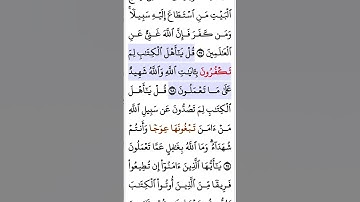 ٱلْبَيْتِ مَنِ ٱسْتَطَاعَ إِلَيْهِ سَبِيلًا ۚ
وَمَن كَفَرَ فَإِنَّ ٱللَّهَ غَنِىٌّ عَنِ
ٱلْعَٰلَمِينَ ۝ قُلْ يَٰٓأَهْلَ ٱلْكِتَٰبِ لِمَ
تَكْفُرُونَ بِـَٔايَٰتِ ٱللَّهِ وَٱللَّهُ شَهِيدٌ
عَلَىٰ مَا تَعْمَلُونَ ۝ قُلْ يَٰٓأَهْلَ
ٱلْكِتَٰبِ لِمَ تَصُدُّونَ عَن سَبِيلِ ٱللَّهِ
مَنْ ءَامَنَ تَبْغُونَهَا عِوَجًا وَأَنتُمْ
شُهَدَآءُ ۗ وَمَا ٱللَّهُ بِغَٰفِلٍ عَمَّا تَعْمَلُونَ
۝ يَٰٓأَيُّهَا ٱلَّذِينَ ءَامَنُوٓا۟ إِن تُطِيعُوا۟
فَرِيقًا مِّنَ ٱلَّذِينَ أُوتُوا۟ ٱلْكِتَٰبَ